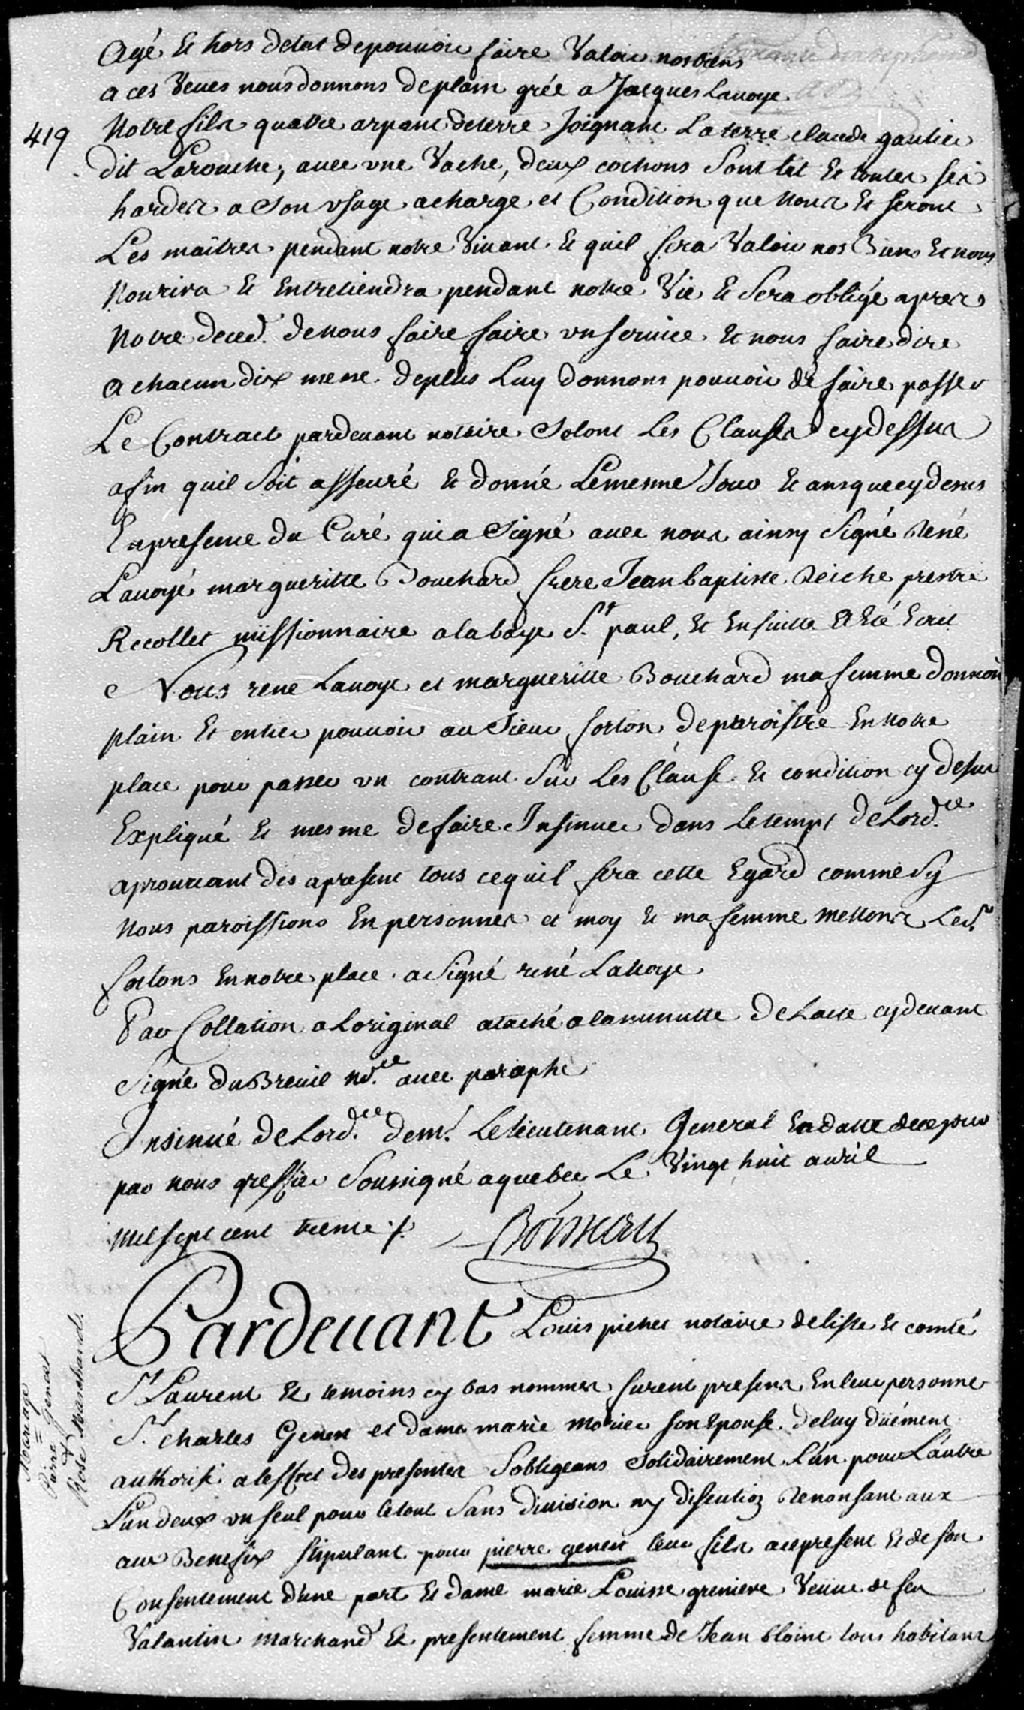 Agé et hors detat depouvoir faire Valoir nos biens
a ces Veues nous donnons deplain grée a Jacques Lauoye
419
Notre fils quatre arpant deterre Joignant La terre claude gautier
dit Larouche, avec vne Vache, deux cochons Sont lit et toutes ses
hardes a Son vsage acharge et Condition que nous Et serons
Les maitres pendant notre Vivant et quil fera Valoir nos Biens et nous
Nourira et Entretiendra pendant notre Vie et Sera obligé apres
Notre deced. denous faire faire vn service et nous faire dire
a chacun dix messe deplus Luy donnons pouvoir de faire passer
Le Contract pardevant notaire Selont Les Clauses cydessus
afin quil Soit asseuré et donné Lemesme Jour et ansquecydesus
En presence du Curé qui a Signé avec nous ainsy Signé René
Lavoyé margueritte Bouchard frere Jean baptiste prestre
Recollet missionnaire a la baye St. paul, et Ensuitte a Eté Ecrit
Nous rene Lavoye et margueritte Bouchard ma femme donnons
plain et entier pouvoir au Sieur forton deparoistre En notre
place pour passer vn contract Sur Les Clause et condition cy desus
Expliqué et mesme de faire Insinuer dans letemps de Lord.ce
aprouvant des apresent tous cequil fera cette Egard comme Sy
Nous paroissions En personnes et moy et ma femme mettons Led.
fortons en notre place a Signé rené Lavoye
Par Collation a Loriginal ataché a la minutte de Lacte cydevant
Signé duBreuil Nore. avec paraphe
Insinué de Lord.ce de mr. Le lieutenant General En datte de ce jour
par nous greffier Soussigné a quebec Le Vingt huit avril
mil sept cent trente ./.
Boisseau
Mariage
Pierre Genest
&
Rose Marchand
Pardevant Louis pichet notaire de lisle et comté
St Laurent et temoins cy bas nommes furent presens En leur personne
Sr. charles Genest et dame marie mourier son Epouse deluy düement
authorisé a leffect des presentes Sobligeans Solidairement Lun pour Lautre
Lun deux vn seul pour le tout Sans division ny discution Renonsant aux
aux Benefix stipulant pour pierre genest leur fils a cepresent et de son
Consentement d'une part et dame marie Louisse greniere Veuve de feu
Valantin marchand et presentement femme de Jean blaint tous habitans